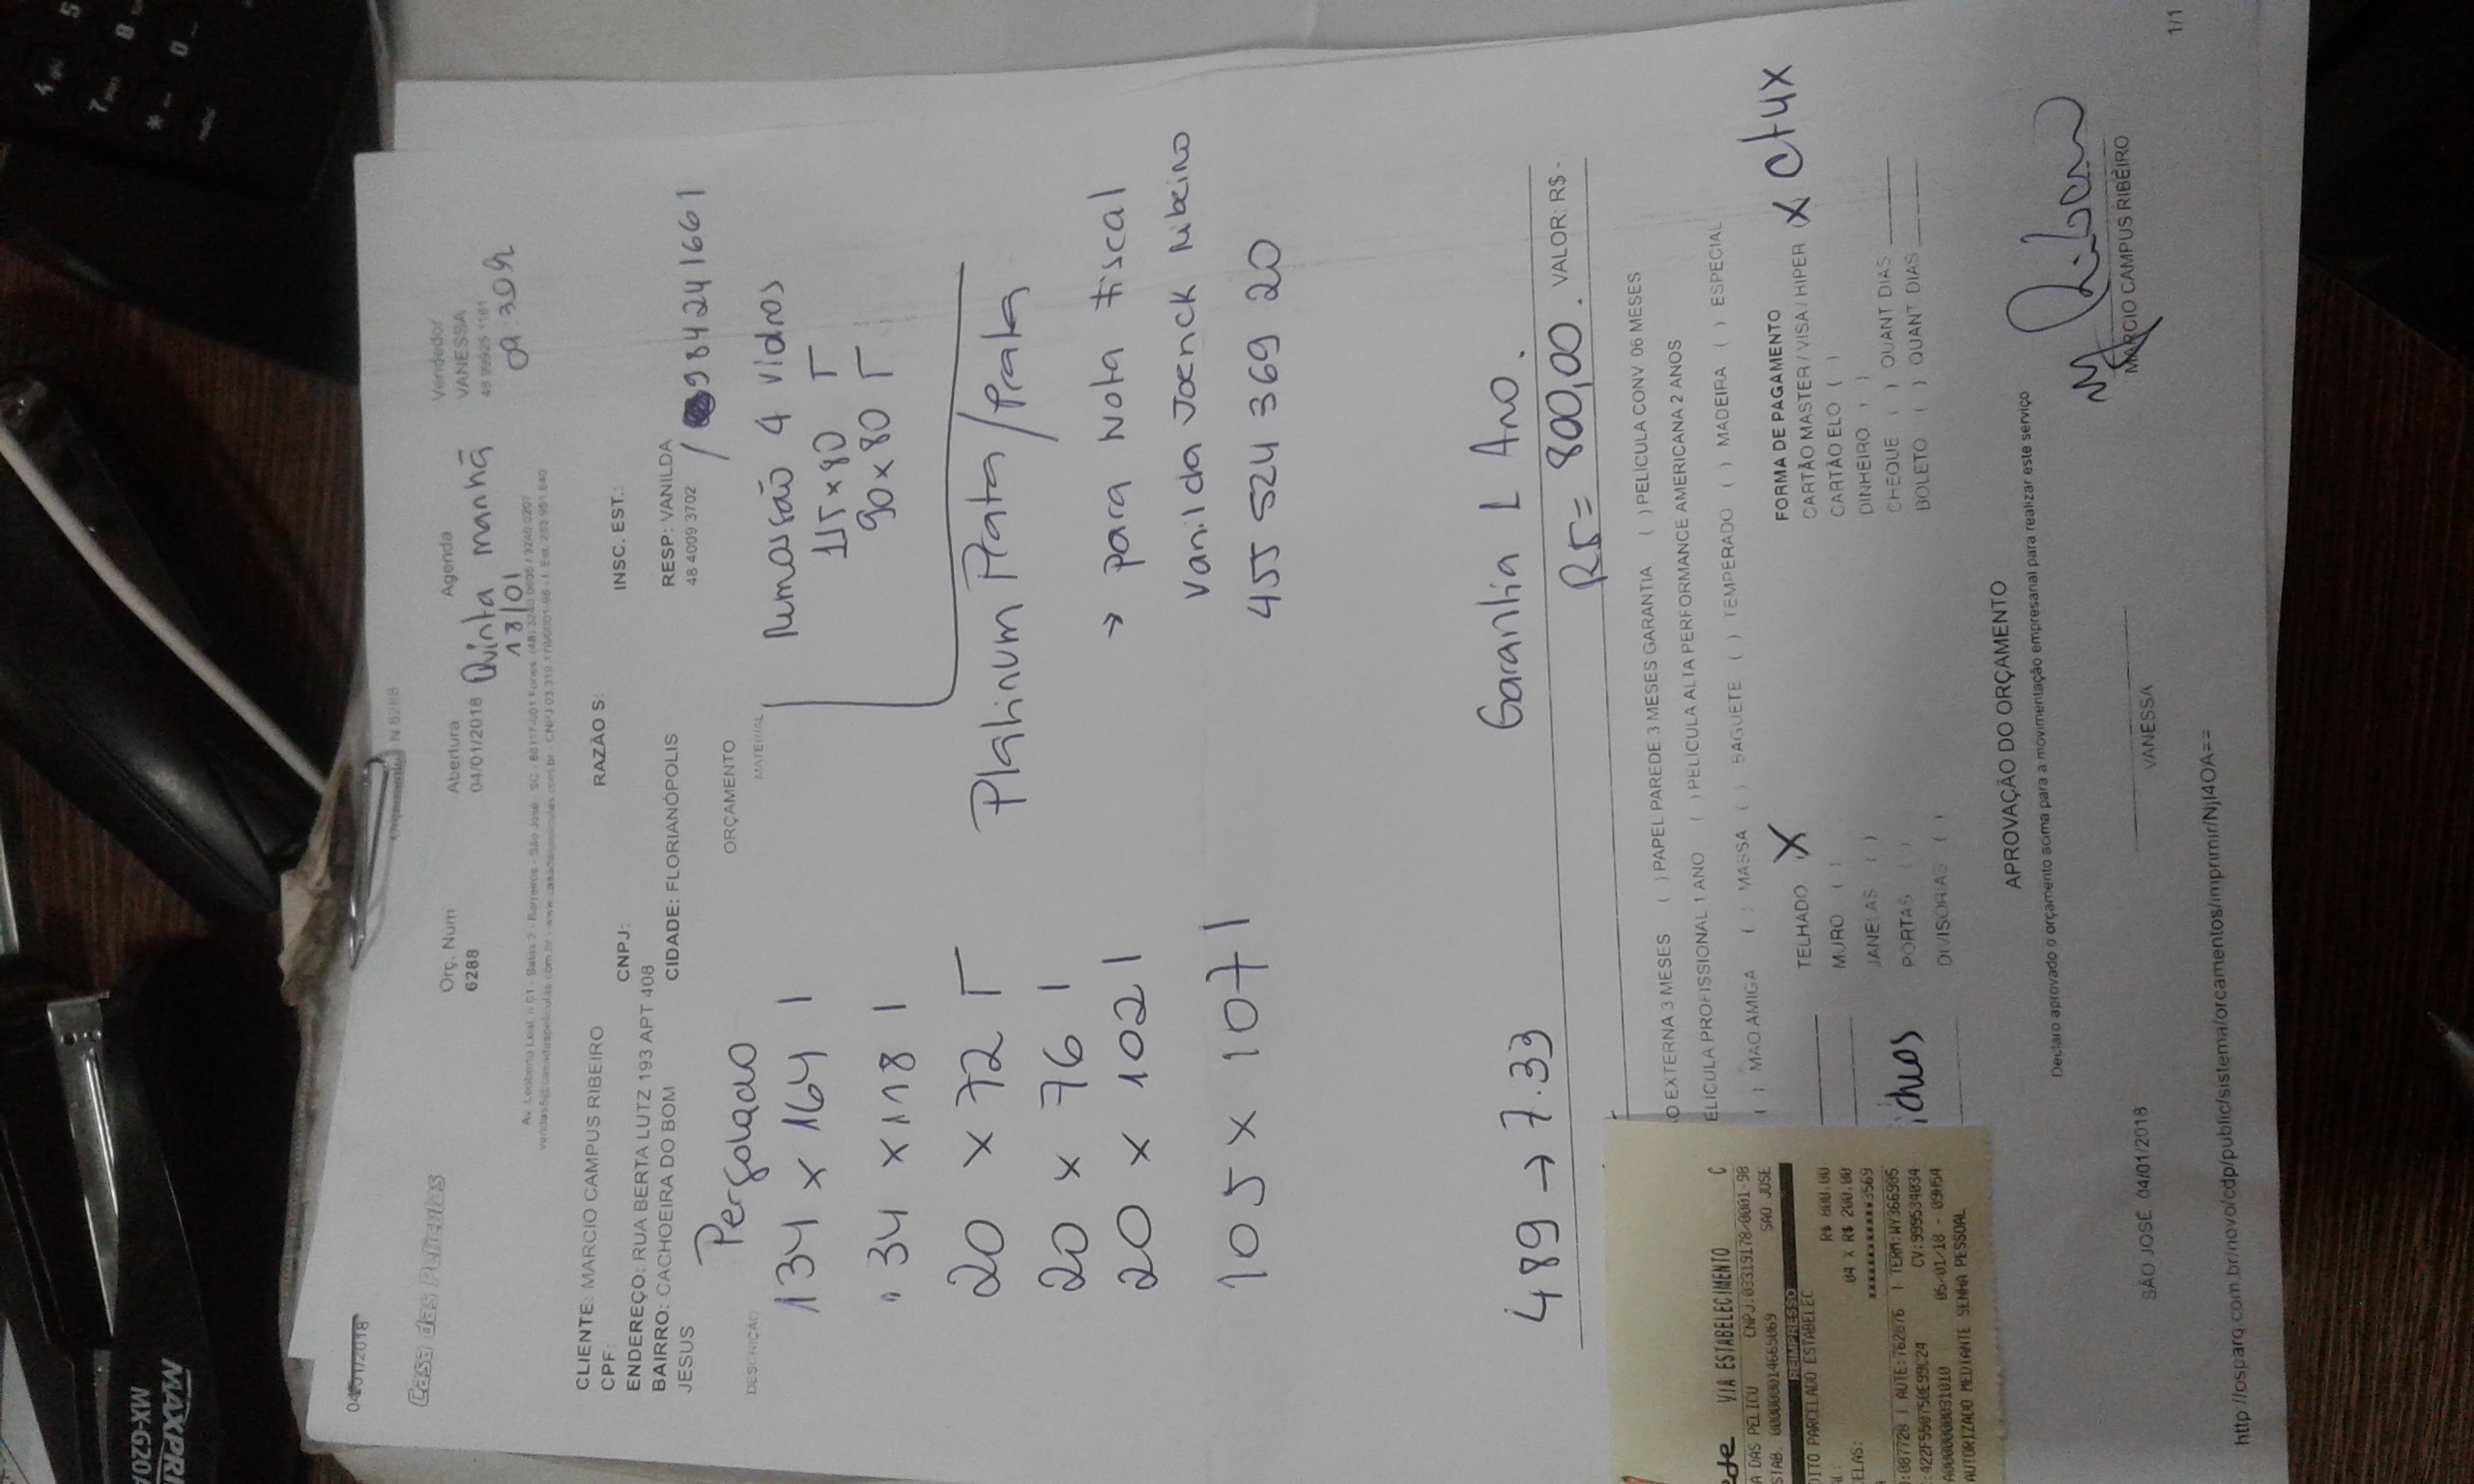 04/01/2018
Orçamento N 6288
Casa das Películas
Orç. Num
6288
Abertura
04/01/2018
Agenda
Quinta manhã
Vendedor
VANESSA
48 99925 1161
09:30h
Av. Leoberto Leal, n 01 - Salas 2 - Barreiros - São José SC - 88117-001 Fones: (48) 3240 0605 / 3240 0207
CLIENTE: MARCIO CAMPUS RIBEIRO
RAZÃO S:
CPF:
CNPJ:
INSC. EST.:
ENDEREÇO: RUA BERTA LUTZ 193 APT 408
BAIRRO: CACHOEIRA DO BOM JESUS
CIDADE: FLORIANÓPOLIS
RESP: VANILDA
48 4009 3702 / 984241661
ORÇAMENTO
DESCRIÇÃO
MATERIAL
Pergolado
134 x 164 1
34 x 118 1
20 x 72
20 x 76 1
20 x 102 1
105 x 107 1
Remossão 4 vidros
115 x 80
90 x 80
Plahinum Prata/Prata
→ para Nota fiscal
Vanilda Joenck Ribeiro
455 524 369 20
489 → 7.33
Garanhia 1 Ano.
R$= 800,00. VALOR: R$-
O EXTERNA 3 MESES ( ) PAPEL PAREDE 3 MESES GARANTIA ( ) PELICULA CONV 06 MESES
ELICULA PROFISSIONAL 1 ANO ( ) PELICULA ALTA PERFORMANCE AMERICANA 2 ANOS
( ) MAO AMIGA ( ) MASSA ( ) BAGUETE ( ) TEMPERADO ( ) MADEIRA ( ) ESPECIAL
TELHADO X
MURO ( )
JANELAS ( )
PORTAS ( )
DIVISORIAS ( )
FORMA DE PAGAMENTO
CARTÃO MASTER / VISA / HIPER (X 4x
CARTÃO ELO ( )
DINHEIRO ( )
CHEQUE ( ) QUANT DIAS
BOLETO ( ) QUANT DIAS
VIA ESTABELECIMENTO C
A DAS PELICU CNPJ:03319178/0001-98
STAB. 000000014665069 SAO JOSE
REIMPRESSO
DITO PARCELADO ESTABELEC
AL: R$ 800,00
ELAS: 04 X R$ 200,00
************3569
:087728 | AUTE:762876 | TERM:WY366905
CV:999534034
05/01/18 - 09H54
AUTORIZADO MEDIANTE SENHA PESSOAL
APROVAÇÃO DO ORÇAMENTO
Declaro aprovado o orçamento acima para a movimentação empresarial para realizar este serviço
SÃO JOSÉ 04/01/2018
VANESSA
MARCIO CAMPUS RIBEIRO
http://osparq.com.br/novo/cdp/public/sistema/orcamentos/imprimir/NjI4OA==
1/1
MAXPRI
MX-G20A